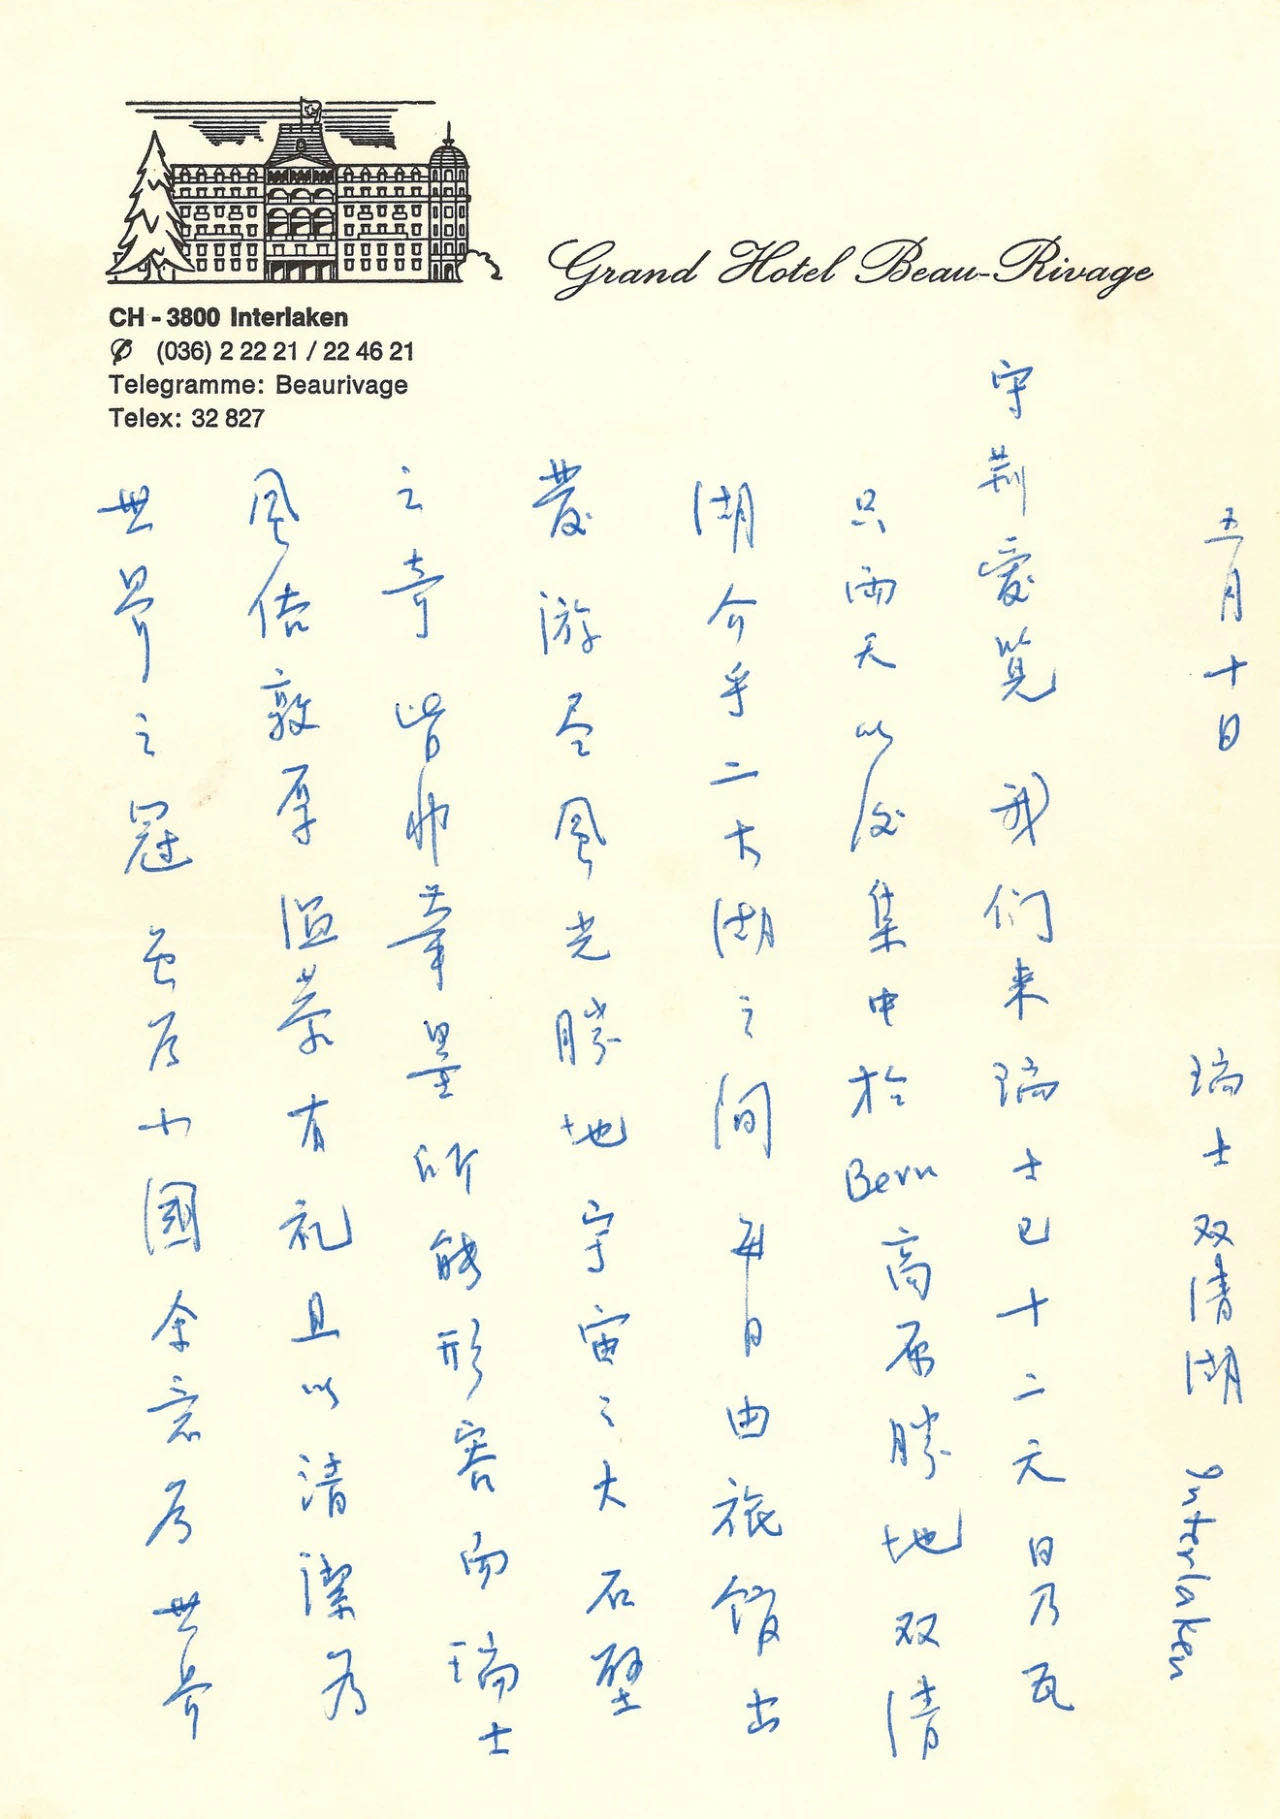 Grand Hotel Beau-Rivage
CH - 3800 Interlaken
(036) 2 22 21 / 22 46 21
Telegramme: Beaurivage
Telex: 32 827
五月十日 瑞士双清湖 Interlaken
守荆爱覧 我们来瑞士已十二元日乃瓦
只雨天以後集中於Bern高原勝地双清
湖介乎二大湖之间 每日由旅馆出
發游尽風光勝地宇宙之大 石壁
之奇 皆非筆墨所能形容而瑞士
風俗敦厚温柔有礼且以清潔为
世界之冠 虽为小國余意为世界